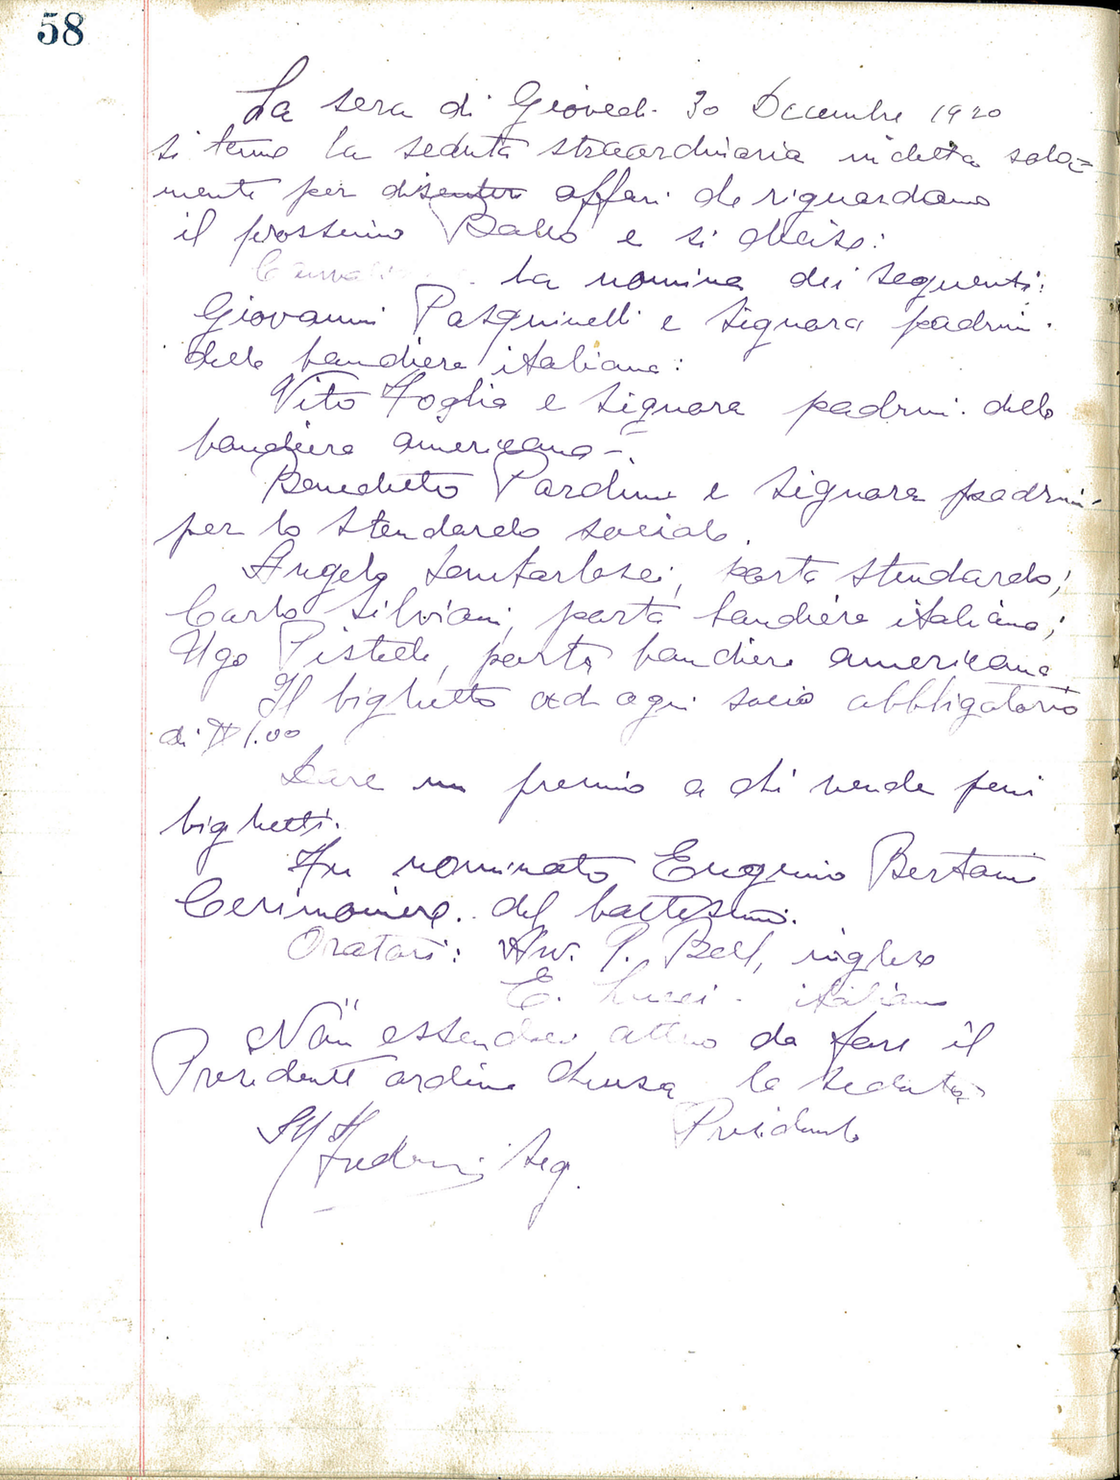 58
La sera di Giovedi 30 Decembre 1920
si tenne la seduta straordinaria indetta sola=
mente per discutere affari che riguardano
il prossimo Ballo e si decise:
la nomina dei seguenti:
Giovanni Pasquinelli e Signora padrini
della bandiera italiana:
Vito Foglia e Signora padrini della
bandiera americana-
Benedetto Pardini e Signora padrini-
per lo stendardo sociale.
Angelo porta stendardo;
Carlo Silviani, porta bandiera italiana;
Ugo Pistelli, porta bandiera americana
Il biglietto ad ogni socio abbligatorio
di $ 1.00
Dare un premio a chi vende peni
biglietti.
Fu nominato Eugenio Bertani
Cerimoniere del battesimo.
Oratori: Avv. P. Bell, inglese
E. Lucci - italiano
Non essendovi altro da fare il
Presidente ordina chiusa la seduta
Presidente
Seg.